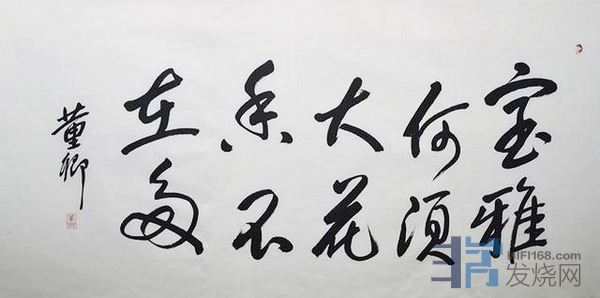 室雅
何须
大花
香不
在多
董卿
HIFI168.com
发烧网